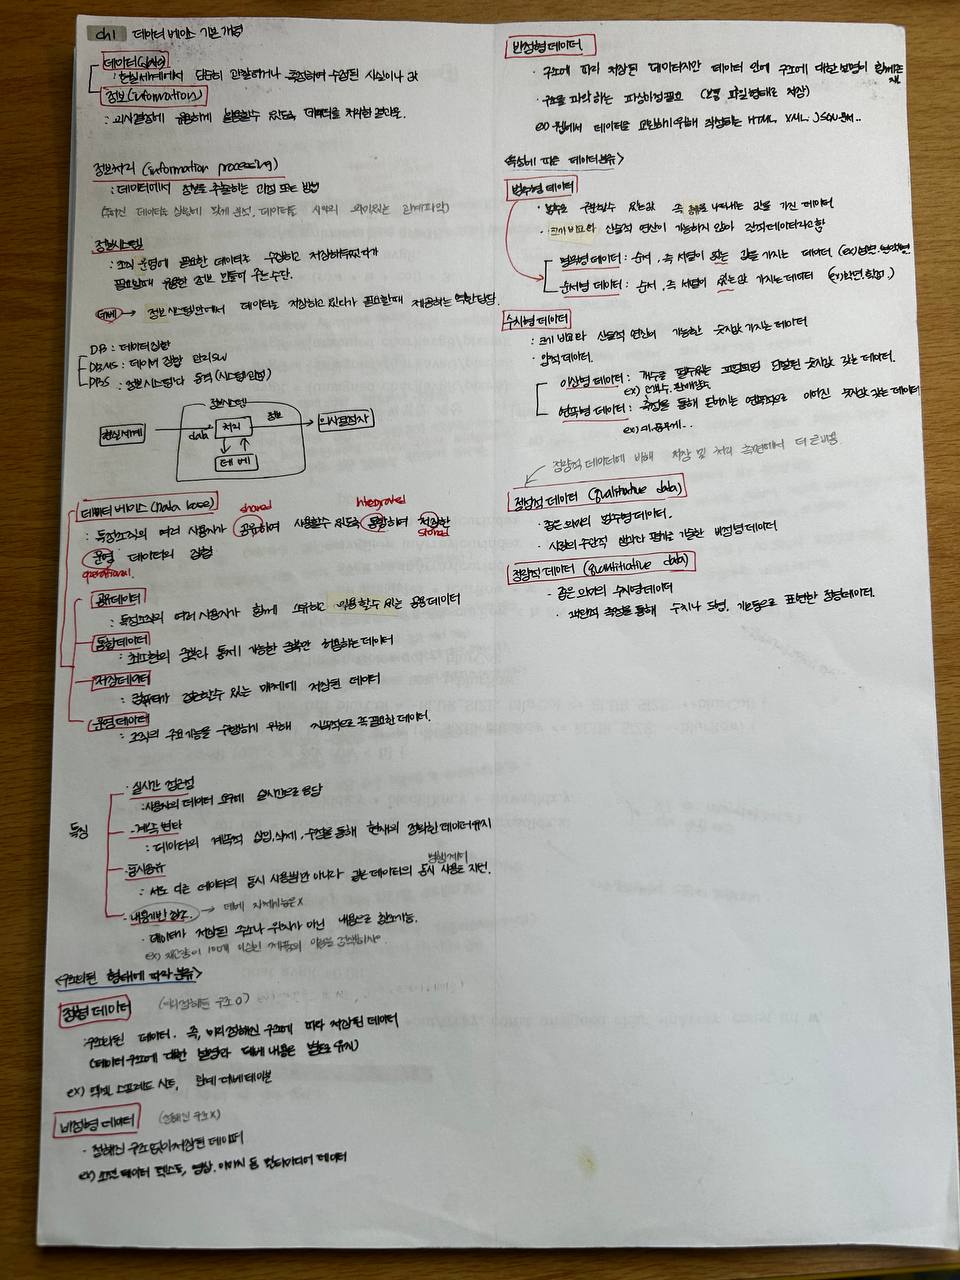 ch1 데이터 베이스 기본 개념
데이터(data)
: 현실세계에서 단순히 관찰하거나 측정하여 수집된 사실이나 값
정보(information)
: 의사결정에 유용하게 활용할수 있도록 데이터를 처리한 결과물.
정보처리 (information processing)
: 데이터에서 정보를 추출하는 과정 또는 방법
정보시스템
: 조직 운영에 필요한 데이터를 수집하고 저장해두었다가
필요할때 유용한 정보 만들어 주는 수단.
데베 → 정보시스템안에서 데이터를 저장하고 있다가 필요할때 제공하는 역할담당.
DB : 데이터집합
DBMS : 데이터 집합 관리 SW
정보시스템
현실세계
data
처리
정보
의사결정자
데 베
데이터 베이스 (Data base)
shared
integrated
: 특정조직의 여러 사용자가 공유하여 사용할수 있도록 통합하여 저장한
stored
운영 데이터의 집합
operational.
공유데이터
: 특정조직의 여러 사용자가 함께 소유하고 이용할수 있는 공용 데이터
통합데이터
: 최소한의 중복과 통제 가능한 중복만 허용하는 데이터
저장데이터
: 컴퓨터가 접근할수 있는 매체에 저장된 데이터
운영데이터
: 조직의 주요기능을 수행하기 위해 지속적으로 꼭 필요한 데이터.
특징
· 실시간 접근성
: 사용자의 데이터 요구에 실시간으로 응답
· 계속 변화
: 데이터의 계속적 삽입, 삭제, 수정을 통해 현재의 정확한 데이터유지
· 동시공유
병행제어
: 서로 다른 데이터의 동시 사용뿐만 아니라 같은 데이터의 동시 사용도 지원.
· 내용기반 참조.
· 데이터가 저장된 주소나 위치가 아닌 내용으로 참조가능.
ex) 재고량이 100개 이상인 제품의 이름을 검색하시오.
<구조화된 형태에 따라 분류>
정형 데이터 (미리정해둔 구조 O)
: 구조화된 데이터. 즉, 미리 정해진 구조에 따라 저장된 데이터
(데이터 구조에 대한 설명과 데베 내용은 별도 유지)
ex) 엑셀 스프레드 시트, 관계 데베 테이블
비정형 데이터 (정해진 구조 X)
· 정해진 구조없이 저장된 데이터
ex) 소셜 데이터 텍스트, 영상, 이미지 등 멀티미디어 데이터
반정형 데이터
· 구조에 따라 저장된 데이터지만 데이터 안에 구조에 대한 설명이 함께존재
· 구조를 파악하는 파싱과정필요 (보통 파일형태로 저장)
ex) 웹에서 데이터를 교환하기위해 작성하는 HTML, XML, JSON문서..
<특성에 따른 데이터분류>
범주형 데이터
· 범주로 구분할수 있는값 즉 종류를 나타내는 값을 가진 데이터
· 크기 비교와 산술적 연산이 가능하지 않아 질적데이터라고함
명목형 데이터 : 순서, 즉 서열이 없는 값을 가지는 데이터
순서형 데이터 : 순서, 즉 서열이 있는값 가지는데이터 (ex) 학년, 학점)
수치형 데이터
: 크기 비교와 산술적 연산이 가능한 숫자값 가지는 데이터
· 양적데이터.
이산형 데이터 : 개수를 셀수있는 단절된 숫자값 갖는 데이터.
ex) 고객수, 판매량수
연속형 데이터 : 측정을 통해 얻어지는 연속적으로 이어진 숫자값 갖는 데이터
ex) 키, 몸무게..
정량적 데이터에 비해 저장 및 처리 측면에서 더 큰비용.
정성적 데이터 (qualitative data)
· 좁은 의미의 범주형 데이터.
· 사람의 주관적 생각과 평가를 기술한 비정형 데이터
정량적 데이터 (quantitative data)
· 좁은 의미의 수치형데이터
· 객관적 측정을 통해 수치나 도형, 기호등으로 표현한 정형데이터.